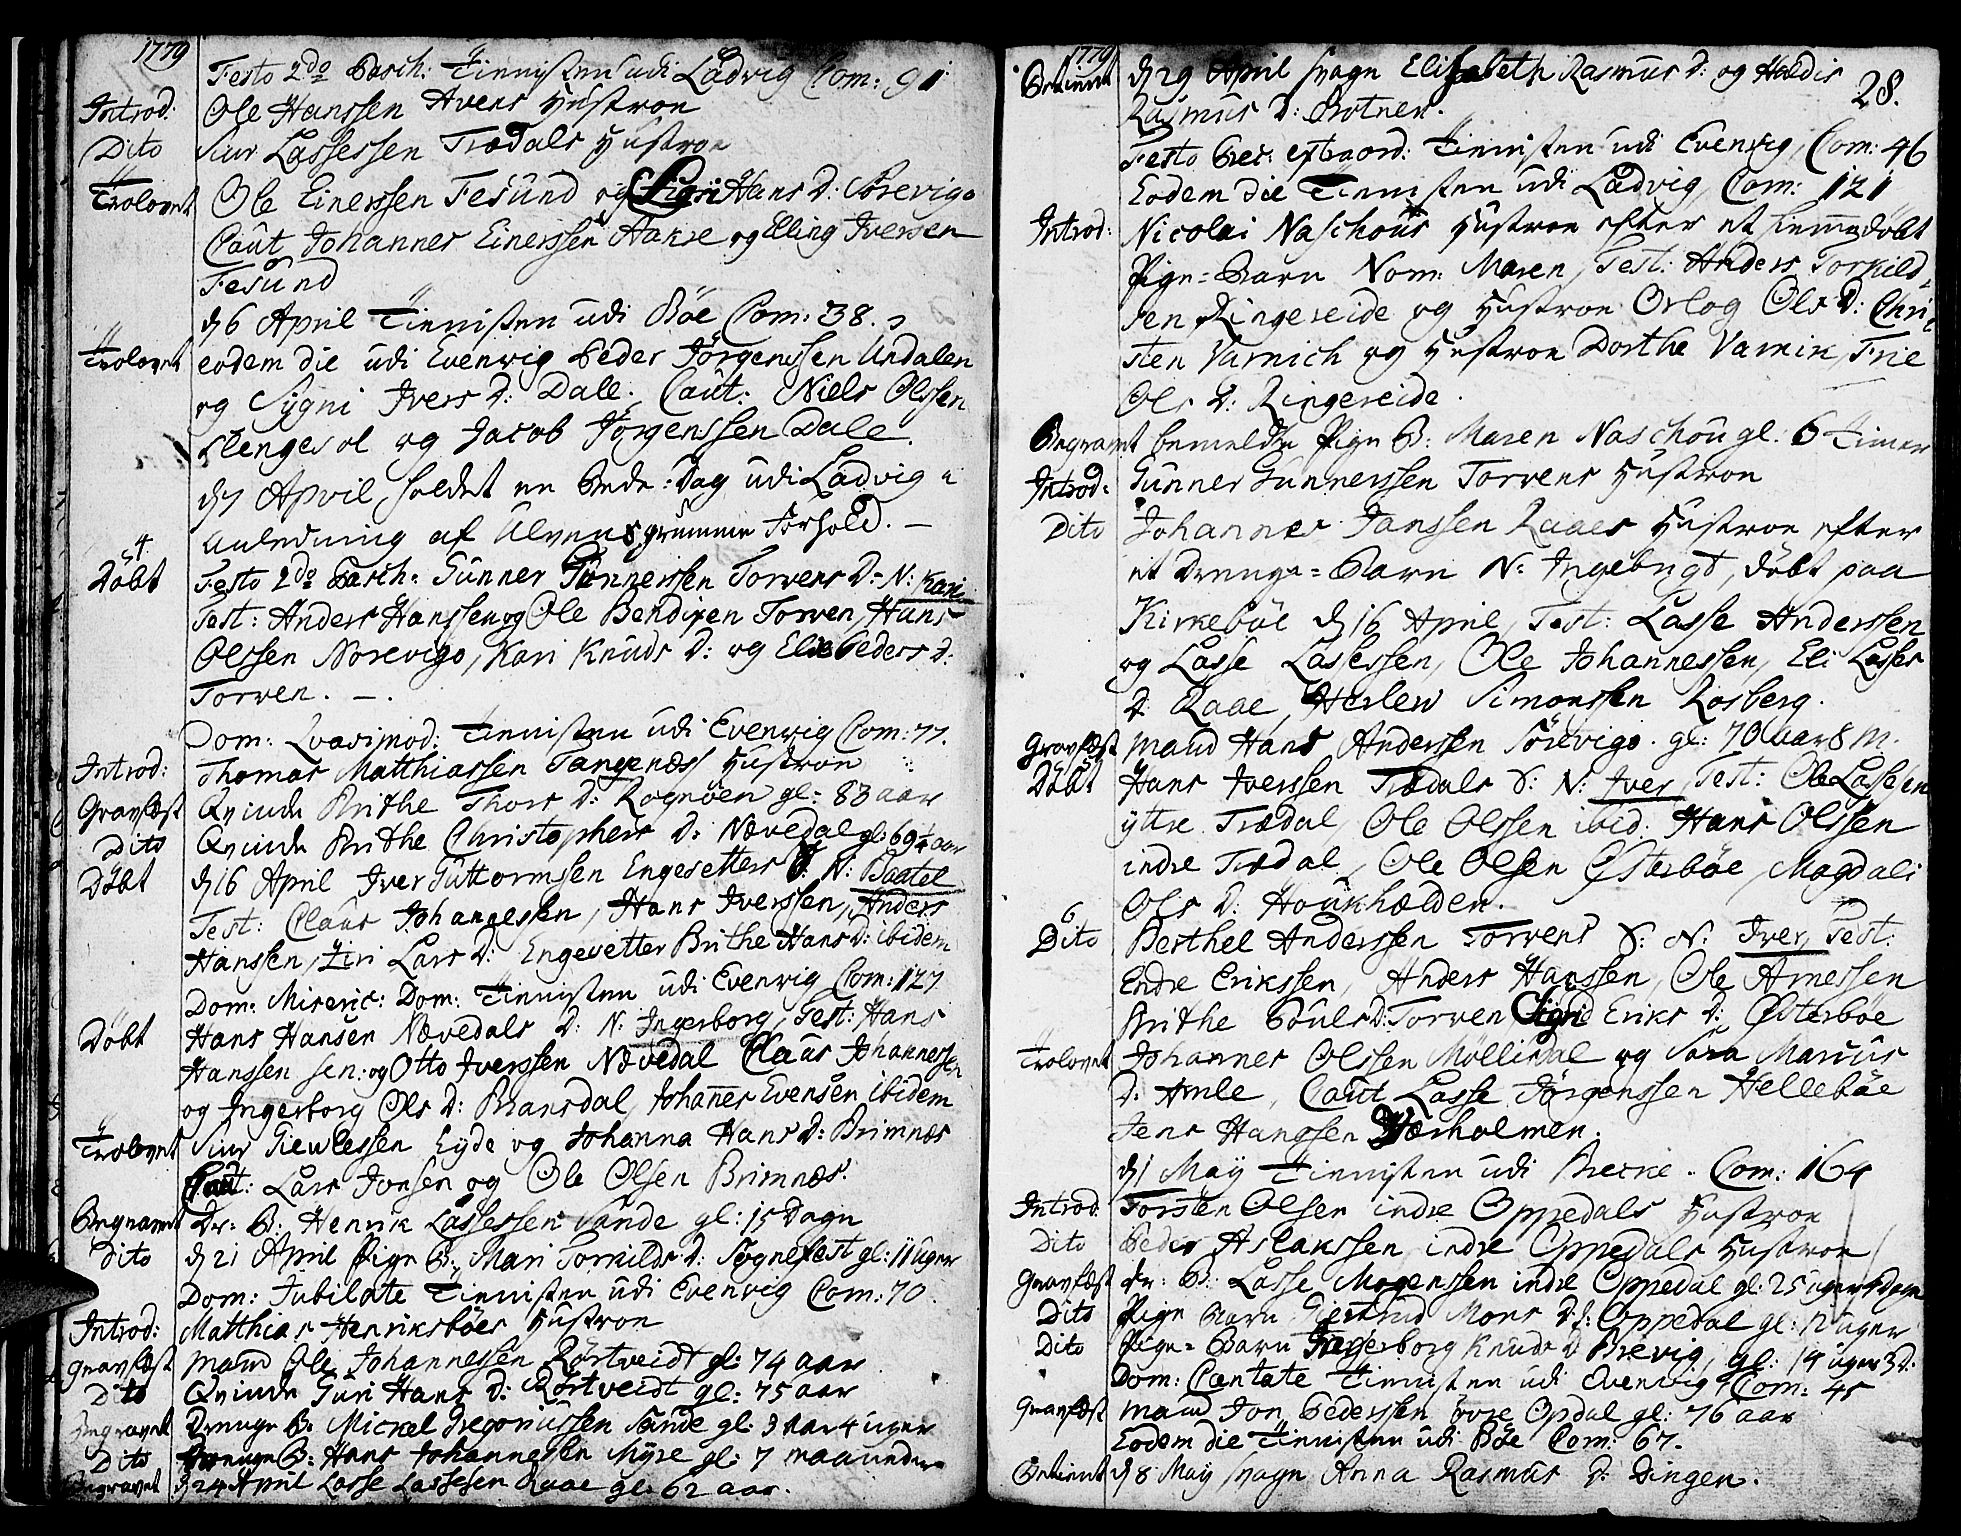 1779
Festo 2do Pasch: Tienisten udi Ladvig Com: 91
Introd: Ole Hanssen Avers Hustroe
Dito Siur Lassessen Trædals Hustroe
Trolovet Ole Einerssen Fesund og Hans D: Norevigo
Caut Johannes Einerssen Aakre og Elling Iversen
Fesund
d 6 April Tienisten udi Böe Com: 38.
Trolovet eodem die udi Evenvig Peder Jörgenssen Undalen
og Sygni Ivers D: Dale. Caut: Niels Olssen
Slengesol og Jacob Jörgenssen Dale.
d 7 April, holdet en Bede-Dag udi Ladvig i
Anledning af Ulvens grumme Forhold.
4
Döbt Festo 2do Pasch: Gunner Gunnerssen Torvens D: N: Kari
Test: Anders Hanssen og Ole Bendixen Torven, Hans
Olssen Norevigo, Kari Knuds D: og Elie Peders D:
Torven.
Dom: Qvasimod: Tienisten udi Evenvig Com: 77.
Introd: Thomas Matthiassen Tangenæs Hustroe
Gravfæst Qvinde Brithe Thors D: Rognöen gl: 83 aar
Dito Qvinde Brithe Christophers D: Nævedal gl: 69 1/4 aar
Döbt d 16 April Iver Guttormsen Engesetters N: Bastel
Test: Claus Johannessen, Hans Iverssen, Anders
Hanssen, Lars D: Engesetter Brithe Hans D: ibidem
Dom: Miseric: Dom: Tienisten udi Evenvig Com: 127
Döbt Hans Hansen Nævedals D: N: Ingerborg, Test: Hans
Hanssen sen: og Otto Iverssen Nævedal Claus Johannessen
og Ingerborg Ols D: Brandsdal, Johannes Evensen ibidem
Trolovet Siur Eyde og Johanna Hans D: Brimnæs
Caut: Lars Jonsen og Ole Olsen Brimnæs.
Begravet Dr: B: Henrik Lassessen Sande gl: 15 Dage
Dito d 21 April Pige B: Mari Torkilds D: Sognefest gl: 11 Uger
Dom: Jubilate Tienisten udi Evenvig Com: 70
Introd: Matthias Henriksböes Hustroe
Gravfæst Mand Ole Johannessen Rörtveidt gl: 74 aar
Dito Qvinde Guri Hans D: Rörtveidt gl: 75 aar
Begravet Drenge B: Mickel Gregoriussen Sande gl: 3 aar 4 uger
Dito Drenge B: Hans Johannessen Myre gl: 7 maaneder
Begravet d 24 April Lasse Lassesen Raae gl: 62 aar.
1779
28.
d 29 April Elisabeth Rasmus D: og Haldis
Rasmus D: Brotnen.
Festo Prec: extraord: Tienisten udi Evenvig, Com: 46
Eodem die Tienisten udi Ladvig, Com: 121
Introd: Nicolai Naschous Hustroe efter et hiemmedöbt
Pige-Barn Nom: Maren, Test: Anders Torkild-
sen Ringereide og Hustroe Orlog Ols D: Chri-
sten Varnich og Hustroe Dorthe Varnik, Frie
Ols D: Ringereide.
Begravet bemeldte Pige B: Maren Naschou gl: 6 Timer
Introd: Gunner Gunnerssen Torvens Hustroe
Dito Johannes Janssen Raaes Hustroe efter
et Drenge-Barn N: Ingebrigt, döbt paa
Kirkeböe d 16 April, Test: Lasse Anderssen
og Lasse Lassessen, Ole Johannessen, Eli Lasses
D: Raae, Herlew Simonssen Rosberg.
Gravfæst Mand Hans Anderssen Sörevigo gl: 70 aar 8 M.
Döbt Hans Iverssen Trædals S: N: Iver, Test: Ole Lassessen
yttre Trædal, Ole Olssen ibid. Hans Olssen
indre Trædal, Ole Olsen Österböe, Magdali
Ols D: Houkhælden.
6
Dito Berthel Anderssen Torvens S: N: Iver, Test:
Endre Erikssen, Anders Hanssen, Ole Arnessen
Brithe Pouls D: Torven, Sigrid Eriks D: Österböe
Trolovet Johannes Olssen Möllerdal og Sara Marcus
D: Amle, Caut Lasse Jörgenssen Helleböe
Jens Hanssen Værholmen.
d 1 May Tienisten udi Brecke. Com: 164
Introd: Torsten Olsen indre Oppedals Hustroe
Dito Peder Aslakssen indre Oppedals Hustroe
Gravfæst Dr: B: Lasse Mogenssen indre Oppedal gl: 25 uger
Dito Pige Barn Giertrud Mons D: Oppedal gl: 12 uger
Dito Pige-Barn Ingerborg Knuds D Brevig, gl: 19 uger 3 D:
Dom: Cantate Tienisten udi Evenvig Com: 45
Gravfæst Mand Jon Pederssen övre Opdal gl: 76 aar
Eodem die Tienisten udi Böe Com: 67.
d 8 May Anna Rasmus D: Dingen.